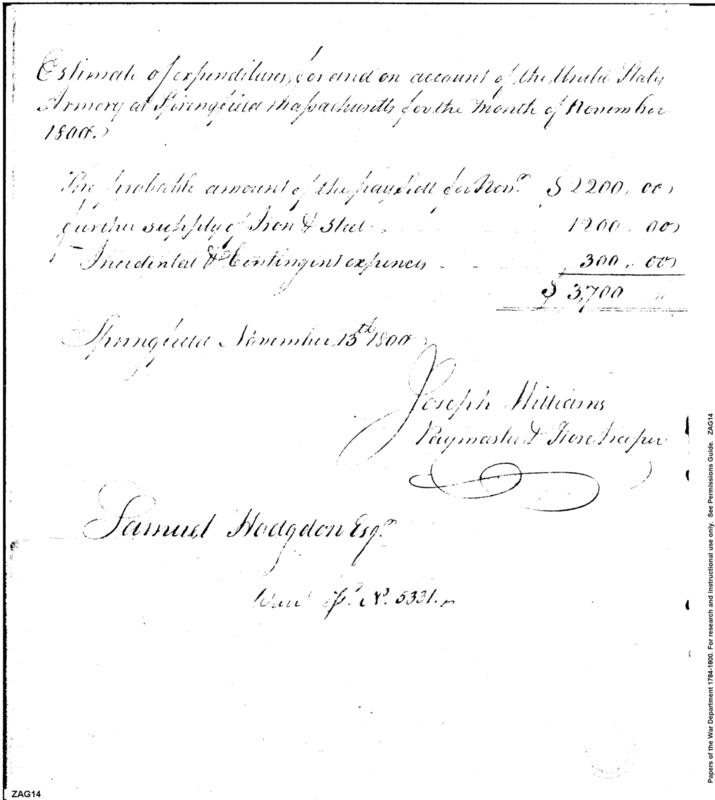 Estimate of expenditures, for and on account of the United States
Armory at Springfield Massachusetts for the Month of November
1800.
The probable amount of the pay Roll for Novr. $ 2200..00
further supply of Iron & Steel 1200..00
Incidental & Contingent expences 300..00
$ 3,700
Springfield November 13th 1800
Joseph Williams
Paymaster & Storekeeper
Samuel Hodgdon Esqr.
No. 5331.
Papers of the War Department 1784-1800. For research and instructional use only. See Permissions Guide. ZAG14
ZAG14